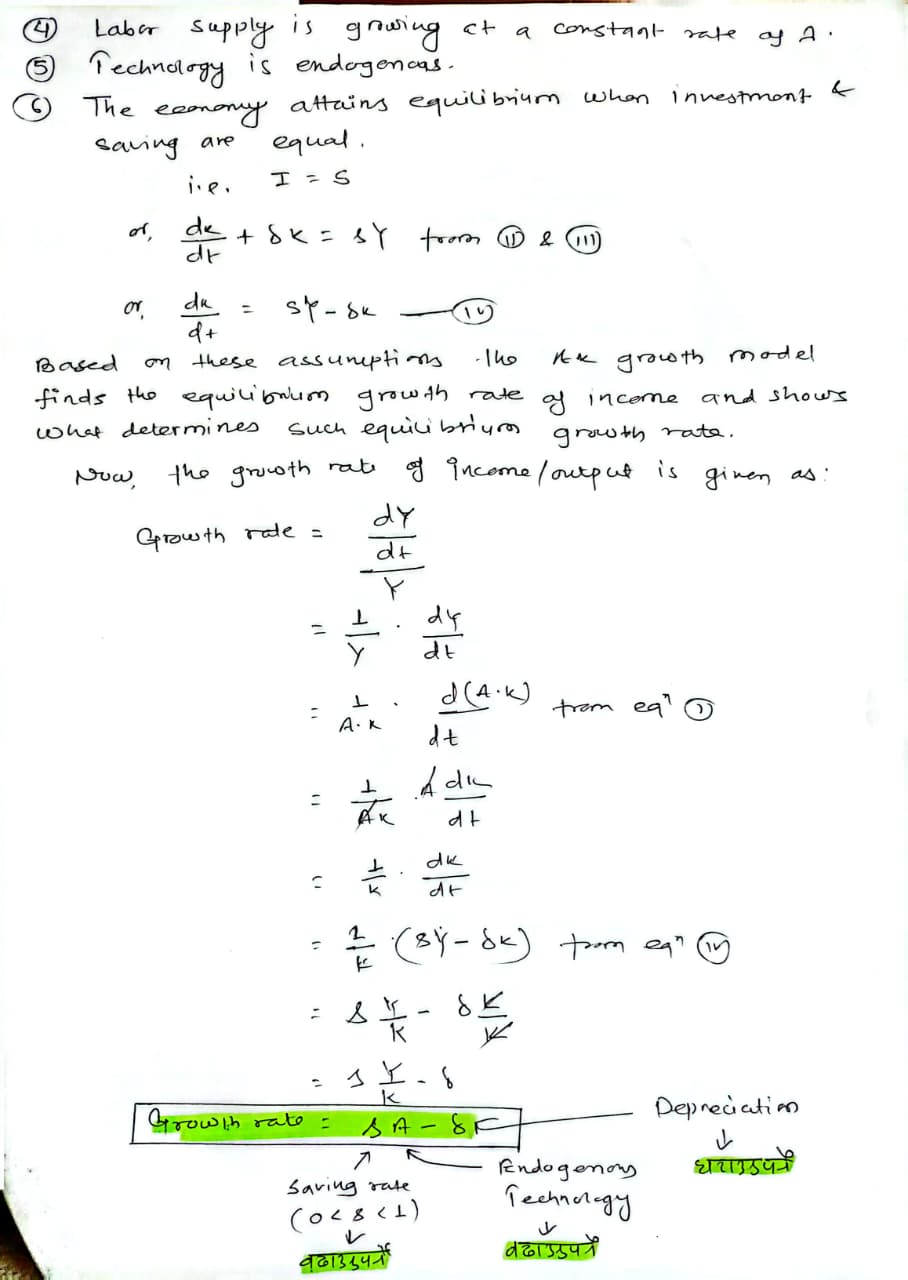 ④ Labor supply is growing at a constant rate of λ.
⑤ Technology is endogenous.
⑥ The economy attains equilibrium when investment &
saving are equal.
i.e. I = S
or, dk/dt + δK = sY from ⅱ & ⅲ
or, dk/dt = sY - δk — ⅳ
Based on these assumptions the Ak growth model
finds the equilibrium growth rate of income and shows
what determines such equilibrium growth rate.
Now, the growth rate of income/output is given as:
Growth rate = (dY/dt)/Y
= 1/Y . dY/dt
= 1/A.k . d(A.k)/dt from eqⁿ ①
= 1/Ak . A dk/dt
= 1/k . dk/dt
= 1/k . (sY - δk) from eqⁿ ⅳ
= s Y/k - δ K/K
= s Y/k - δ
Growth rate = sA - δ
Depreciation
घटाउनुपर्ने
Endogenous
Technology
Saving rate
(0 < s < 1)